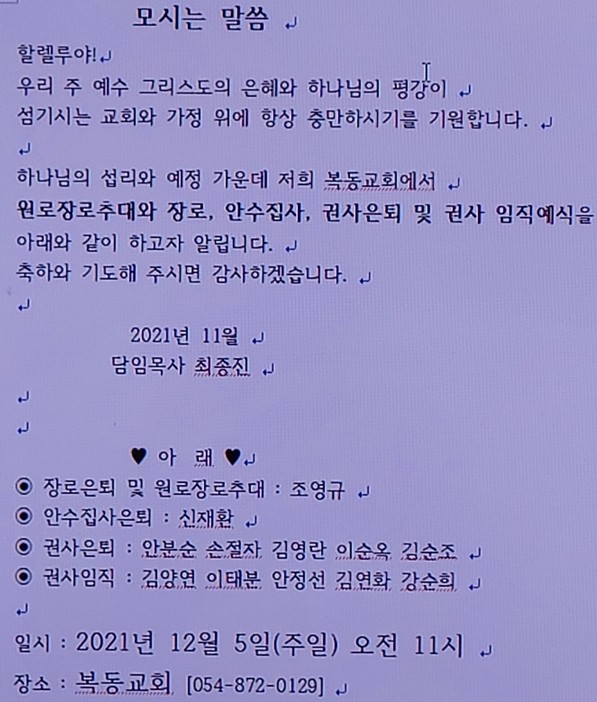 모시는 말씀
할렐루야!
우리 주 예수 그리스도의 은혜와 하나님의 평강이
섬기시는 교회와 가정 위에 항상 충만하시기를 기원합니다.
하나님의 섭리와 예정 가운데 저희 복동교회에서
원로장로추대와 장로, 안수집사, 권사은퇴 및 권사 임직예식을
아래와 같이 하고자 알립니다.
축하와 기도해 주시면 감사하겠습니다.
2021년 11월
담임목사 최종진
♥ 아 래 ♥
◉ 장로은퇴 및 원로장로추대 : 조영규
◉ 안수집사은퇴 : 신재환
◉ 권사은퇴 : 안분순 손절자 김영란 이순옥 김순조
◉ 권사임직 : 김양연 이태분 안정선 김연화 강순희
일시 : 2021년 12월 5일(주일) 오전 11시
장소 : 복동교회 [054-872-0129]